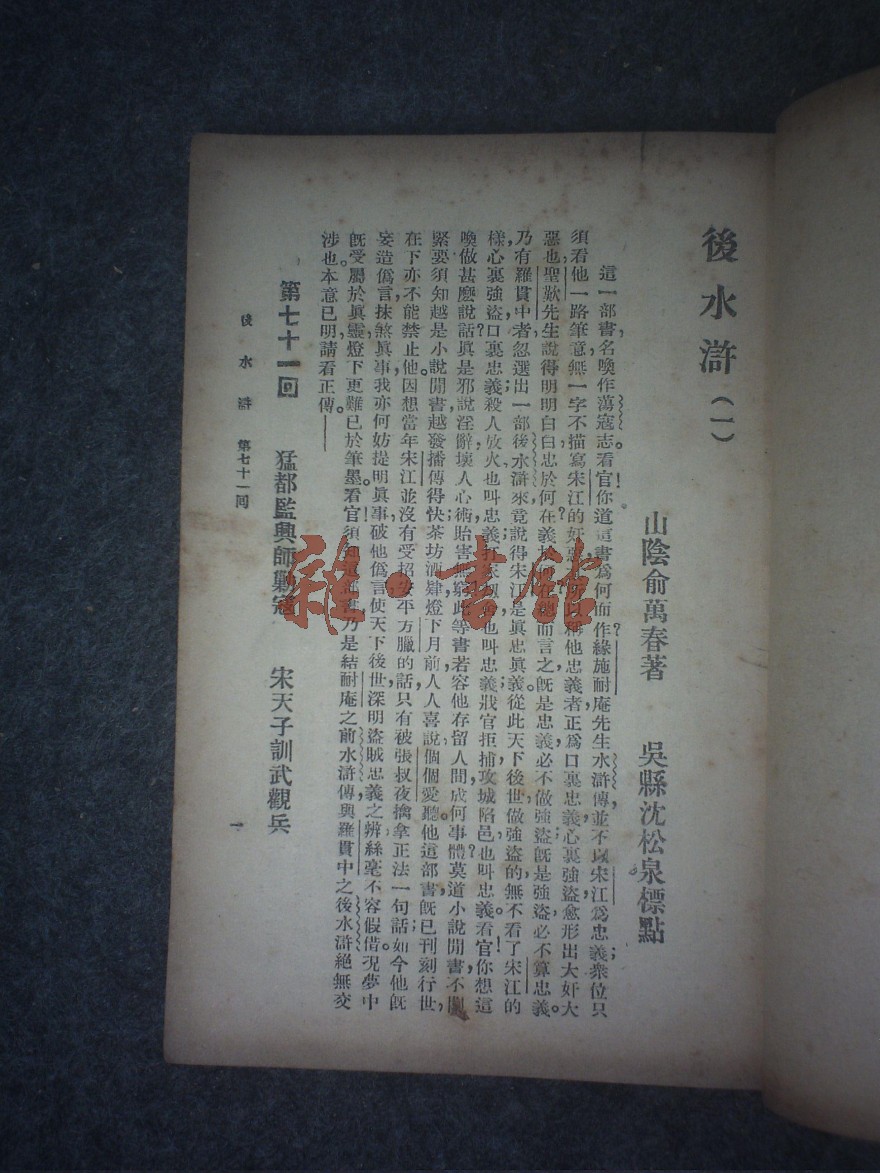 後水滸(一)
山陰俞萬春著　吳縣沈松泉標點
這一部書,名喚作蕩寇志。看官!你道這書爲何而作?緣施耐庵先生水滸傳,並不以宋江爲忠義;衆位只
須看他一路筆意,無一字不描寫宋江的奸惡。其所以稱他忠義者,正爲口裏忠義,心裏強盜,愈形出大奸大
惡也。聖歎先生說得明明白白:忠於何在?義於何在?總而言之,旣是忠義,必不做強盜;旣是強盜,必不算忠義。
乃有羅貫中者,忽選出一部後水滸來,竟說得宋江是眞忠眞義。從此天下後世做強盜的,無不看了宋江的
樣,心裏強盜,口裏忠義。殺人放火也叫忠義,打家劫舍也叫忠義,戕官拒捕攻城陷邑也叫忠義。看官!你想這
喚做甚麽說話?眞是邪說淫辭,壞人心術,貽害無窮。此等書若容他存留人間,成何事體?莫道小說閒書不關
緊要,須知越是小說閒書,越發播傳得快,茶坊酒肆,燈下月前,人人喜說,個個愛聽。他這部書旣已刊刻行世,
在下亦不能禁止他。因想當年宋江,並沒有受招安平方臘的話,只有被張叔夜擒拿正法一句話;如今他旣
妄造僞言,抹煞眞事,我亦何妨提明眞事,破他僞言,使天下後世深明盜賊忠義之辨,絲毫不容假借。況夢中
旣受屬於眞靈,燈下更難已於筆墨。看官須知!這部書乃是結耐庵之前水滸傳,與羅貫中之後水滸,絕無交
涉也。本意已明,請看正傳——
第七十一回　猛都監興師剿寇　宋天子訓武觀兵
後水滸　第七十一回　一
雜·書館